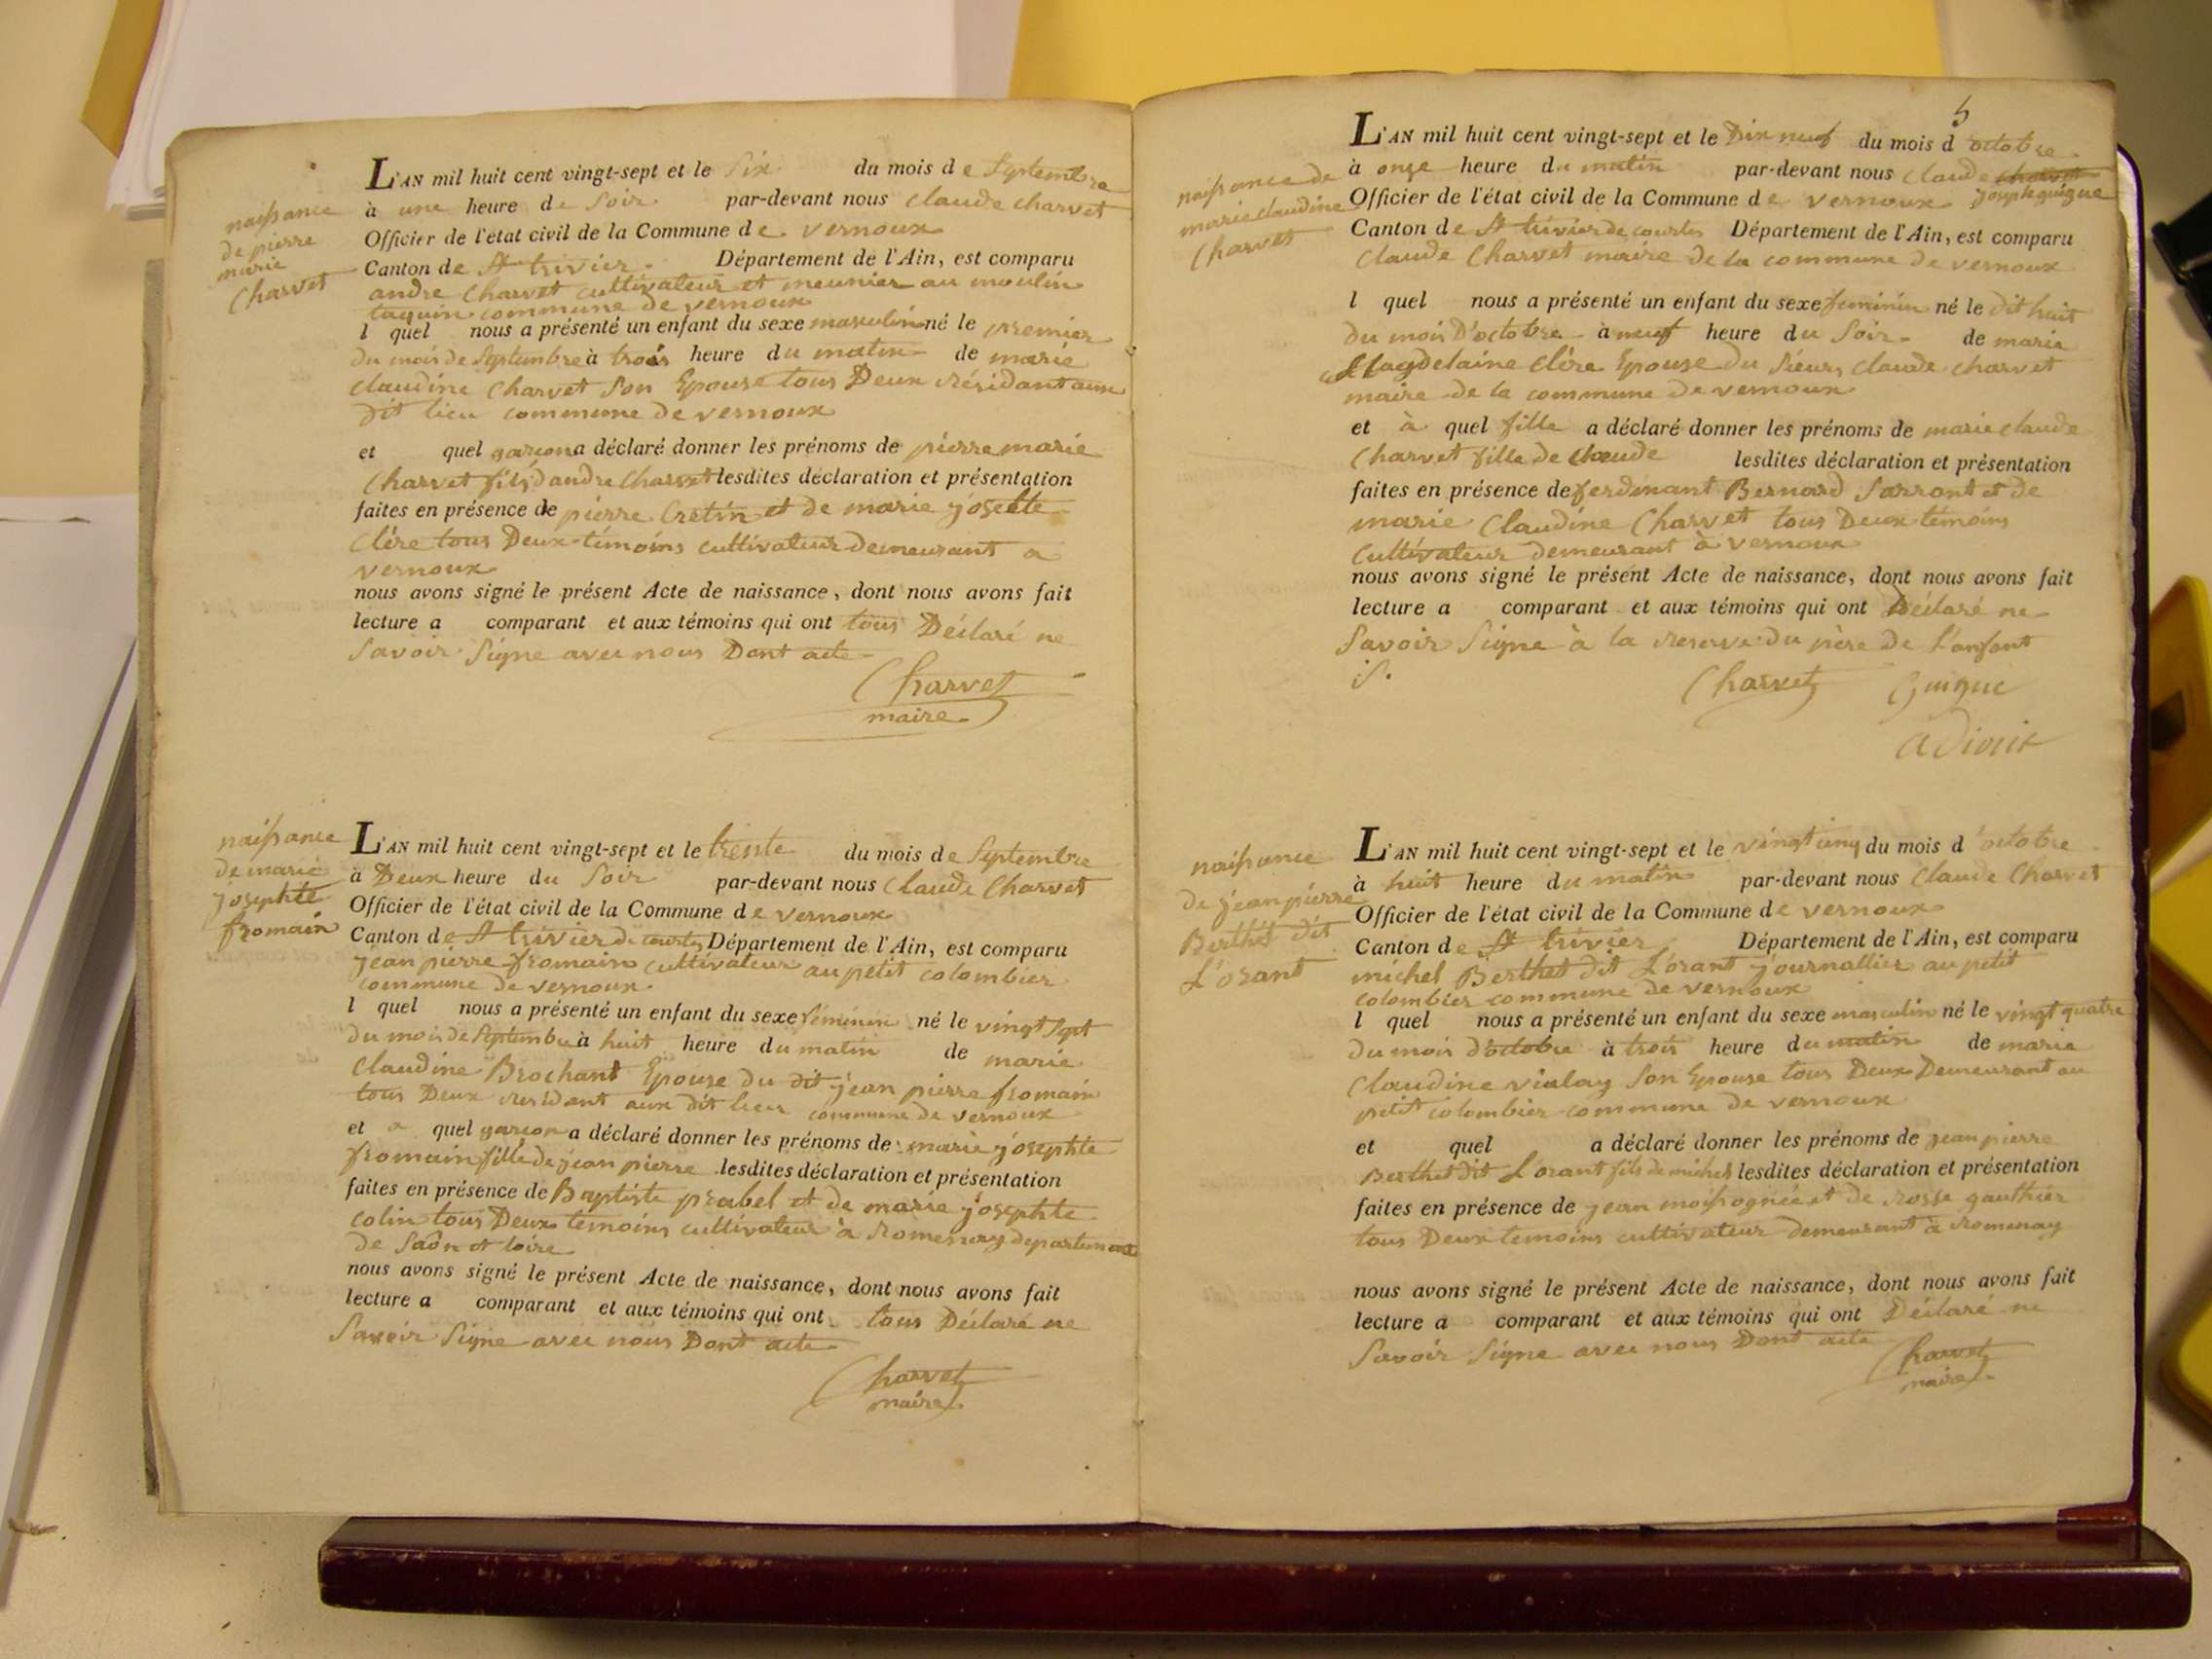 naissance
de pierre
marie
Charvet
L'AN mil huit cent vingt-sept et le Six du mois de Septembre
à une heure de Soir par-devant nous claude charvet
Officier de l'état civil de la Commune de vernoux
Canton de St trivier Département de l'Ain, est comparu
andre Charvet cultivateur et meunier au moulin
taquin commune de vernoux
l quel nous a présenté un enfant du sexe masculin né le premier
du mois de Septembre à trois heure du matin de marie
claudine Charvet Son Epouse tous Deux résidant aux
dit lieu commune de vernoux
et quel garcon a déclaré donner les prénoms de pierre marie
Charvet fils d'andre Charvet lesdites déclaration et présentation
faites en présence de pierre Cretin et de marie josepte
Clère tous Deux témoins cultivateur demeurant a
vernoux
nous avons signé le présent Acte de naissance, dont nous avons fait
lecture a comparant et aux témoins qui ont tous Déclaré ne
Savoir Signe avec nous Dont acte
Charvet
maire
naissance
de marie
josephte
fromain
L'AN mil huit cent vingt-sept et le trente du mois de Septembre
à Deux heure du Soir par-devant nous Claude Charvet
Officier de l'état civil de la Commune de vernoux
Canton de St trivier de courtes Département de l'Ain, est comparu
jean pierre fromain cultivateur au petit colombier
commune de vernoux
l quel nous a présenté un enfant du sexe féminin né le vingt Sept
du mois de Septembre à huit heure du matin de marie
Claudine Brochant Epouse du dit jean pierre fromain
tous Deux résidant aux dit lieu commune de vernoux
et a quel garcon a déclaré donner les prénoms de marie josephte
fromain fille de jean pierre lesdites déclaration et présentation
faites en présence de Baptiste prabel et de marie josephte
colin tous Deux témoins cultivateur à romenay departement
de Saôn et loire
nous avons signé le présent Acte de naissance, dont nous avons fait
lecture a comparant et aux témoins qui ont tous Déclaré ne
Savoir Signe avec nous Dont acte
Charvet
maire
5
naissance de
marie claudine
Charvet
L'AN mil huit cent vingt-sept et le Dix neuf du mois d'octobre
à onze heure du matin par-devant nous Claude charvet
joseph guigue
Officier de l'état civil de la Commune de vernoux
Canton de St trivier de courtes Département de l'Ain, est comparu
Claude Charvet maire de la commune de vernoux
l quel nous a présenté un enfant du sexe feminin né le dit huit
du mois D'octobre à neuf heure du Soir de marie
Magdelaine clère Epouse du Sieur claude charvet
maire de la commune de vernoux
et à quel fille a déclaré donner les prénoms de marie claude
Charvet fille de claude lesdites déclaration et présentation
faites en présence de ferdinant Bernard Sarront et de
marie Claudine Charvet tous Deux témoins
Cultivateur demeurant à vernoux
nous avons signé le présent Acte de naissance, dont nous avons fait
lecture a comparant et aux témoins qui ont Déclaré ne
Savoir Signe à la reserve du père de l'anfant
Charvet Guigue
adjoint
naissance
de jean pierre
Berthet dit
L'orant
L'AN mil huit cent vingt-sept et le vingt cinq du mois d'octobre
à huit heure du matin par-devant nous Claude Charvet
Officier de l'état civil de la Commune de vernoux
Canton de St trivier Département de l'Ain, est comparu
michel Berthet dit L'orant journallier au petit
colombier commune de vernoux
l quel nous a présenté un enfant du sexe masculin né le vingt quatre
du mois d'octobre à trois heure du matin de marie
Claudine vialay Son Epouse tous Deux Demeurant au
petit colombier commune de vernoux
et quel a déclaré donner les prénoms de jean pierre
Berthet dit L'orant fils de michel lesdites déclaration et présentation
faites en présence de jean moissognée et de rosse gauthier
tous Deux temoins cultivateur demeurant à romenay
nous avons signé le présent Acte de naissance, dont nous avons fait
lecture a comparant et aux témoins qui ont Déclaré ne
Savoir Signe avec nous Dont acte
Charvet
maire